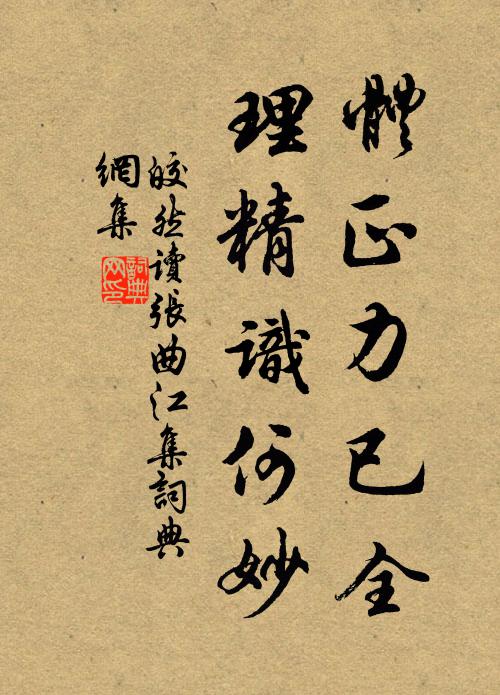 體正力已全
理精識何妙
皎然讀張曲江集詞典
網集
詞典
网印